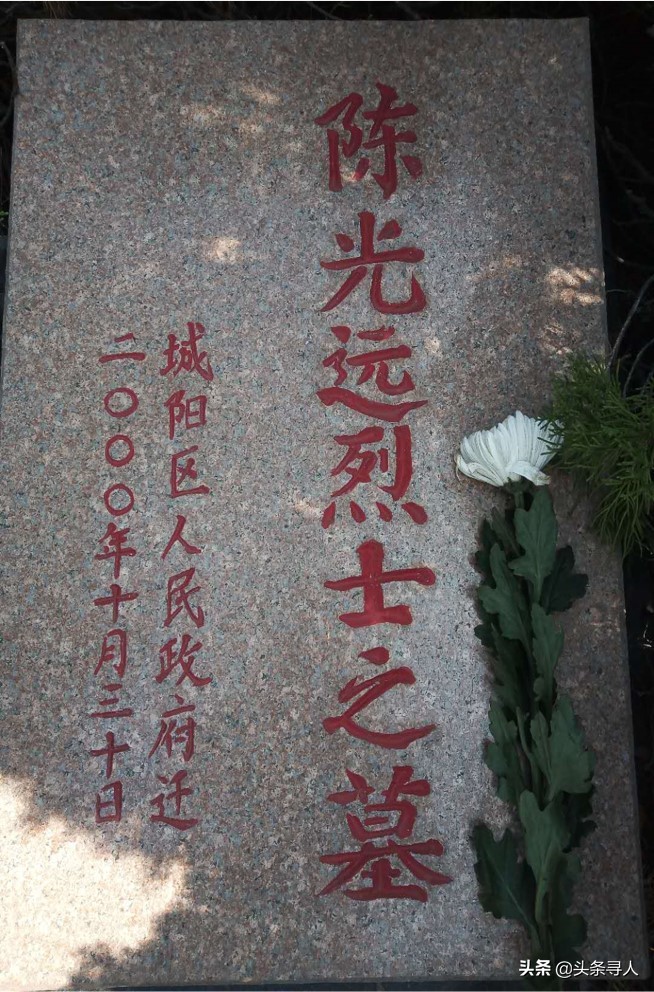 陈光远烈士之墓
城阳区人民政府迁
二〇〇〇年十月三十日
头条 @头条寻人